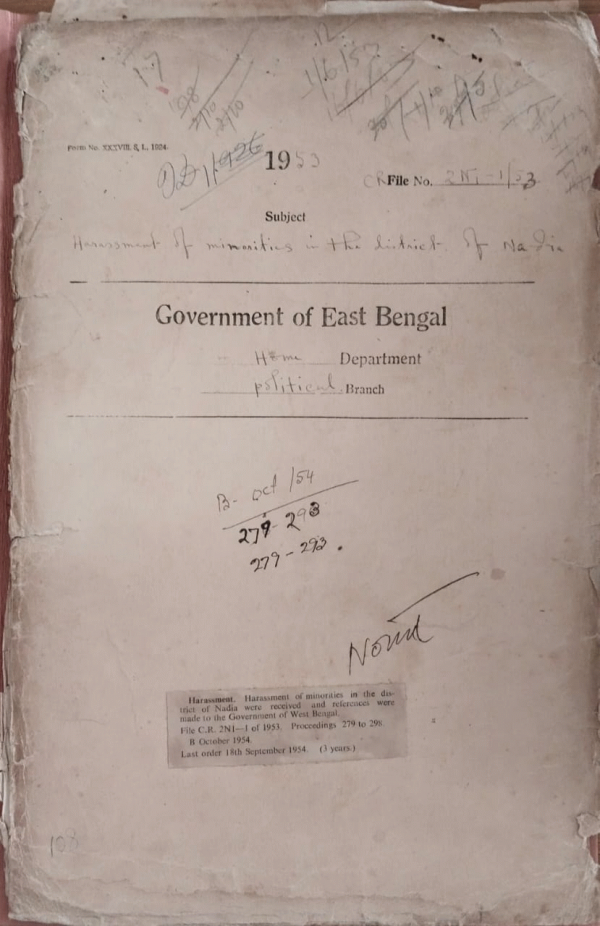 17
1/6/53
Form No. XXXVIII. 8, L, 1904.
1953
CR File No. 2N1-1/53
Subject
Harassment of minorities in the district of Nadia
Government of East Bengal
Home Department
political Branch
B- Oct /54
279-293
279-293.
Harassment. Harassment of minorities in the dis-
trict of Nadia were received and references were
made to the Government of West Bengal.
File C.R. 2N1—1 of 1953. Proceedings 279 to 293
B October 1954.
Last order 18th September 1954. (3 years.)